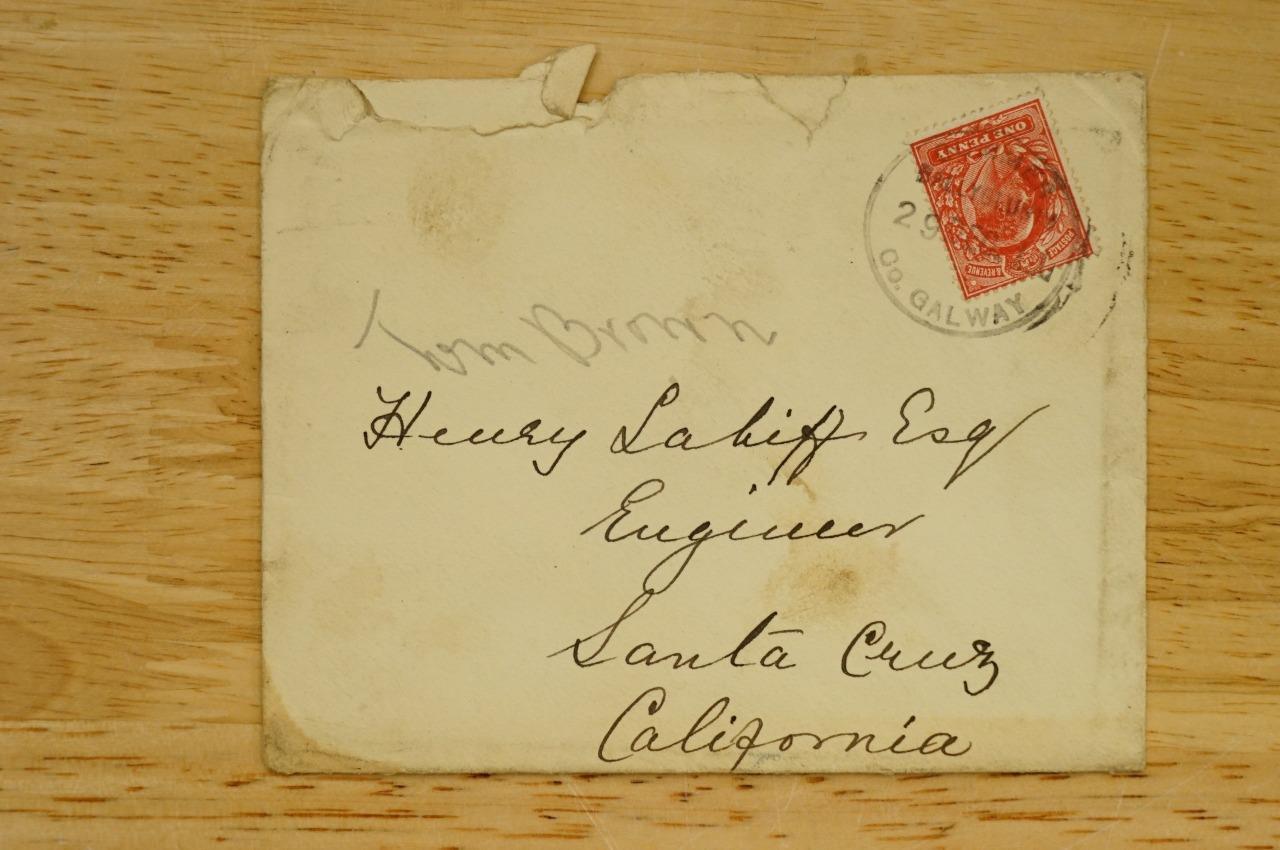 ONE PENNY
POSTAGE & REVENUE
29
Co. GALWAY
Tom Brown
Henry Lahiff Esq
Engineer
Santa Cruz
California